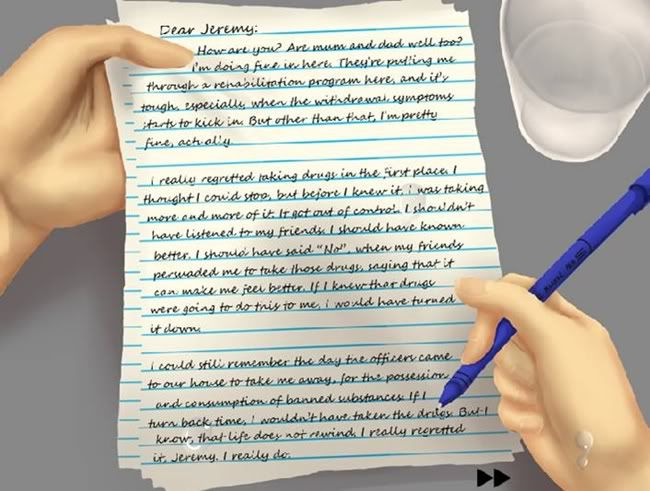 Dear Jeremy:
How are you? Are mum and dad well too?
I'm doing fine in here. They're putting me
through a rehabilitation program here, and it's
tough, especially, when the withdrawal symptoms
starts to kick in. But other than that, I'm pretty
fine, actually.
I really regretted taking drugs in the first place. I
thought I could stop, but before I knew it, i was taking
more and more of it. It got out of control. I shouldn't
have listened to my friends. I should have known
better. I should have said "No", when my friends
persuaded me to take those drugs, saying that it
can make me feel better. If I knew that drugs
were going to do this to me, i would have turned
it down.
I could still remember the day the officers came
to our house to take me away, for the possession
and consumption of banned substances. If I
turn back time, i wouldn't have taken the drugs. But I
know, that life does not rewind. I really regretted
it, Jeremy. I really do.